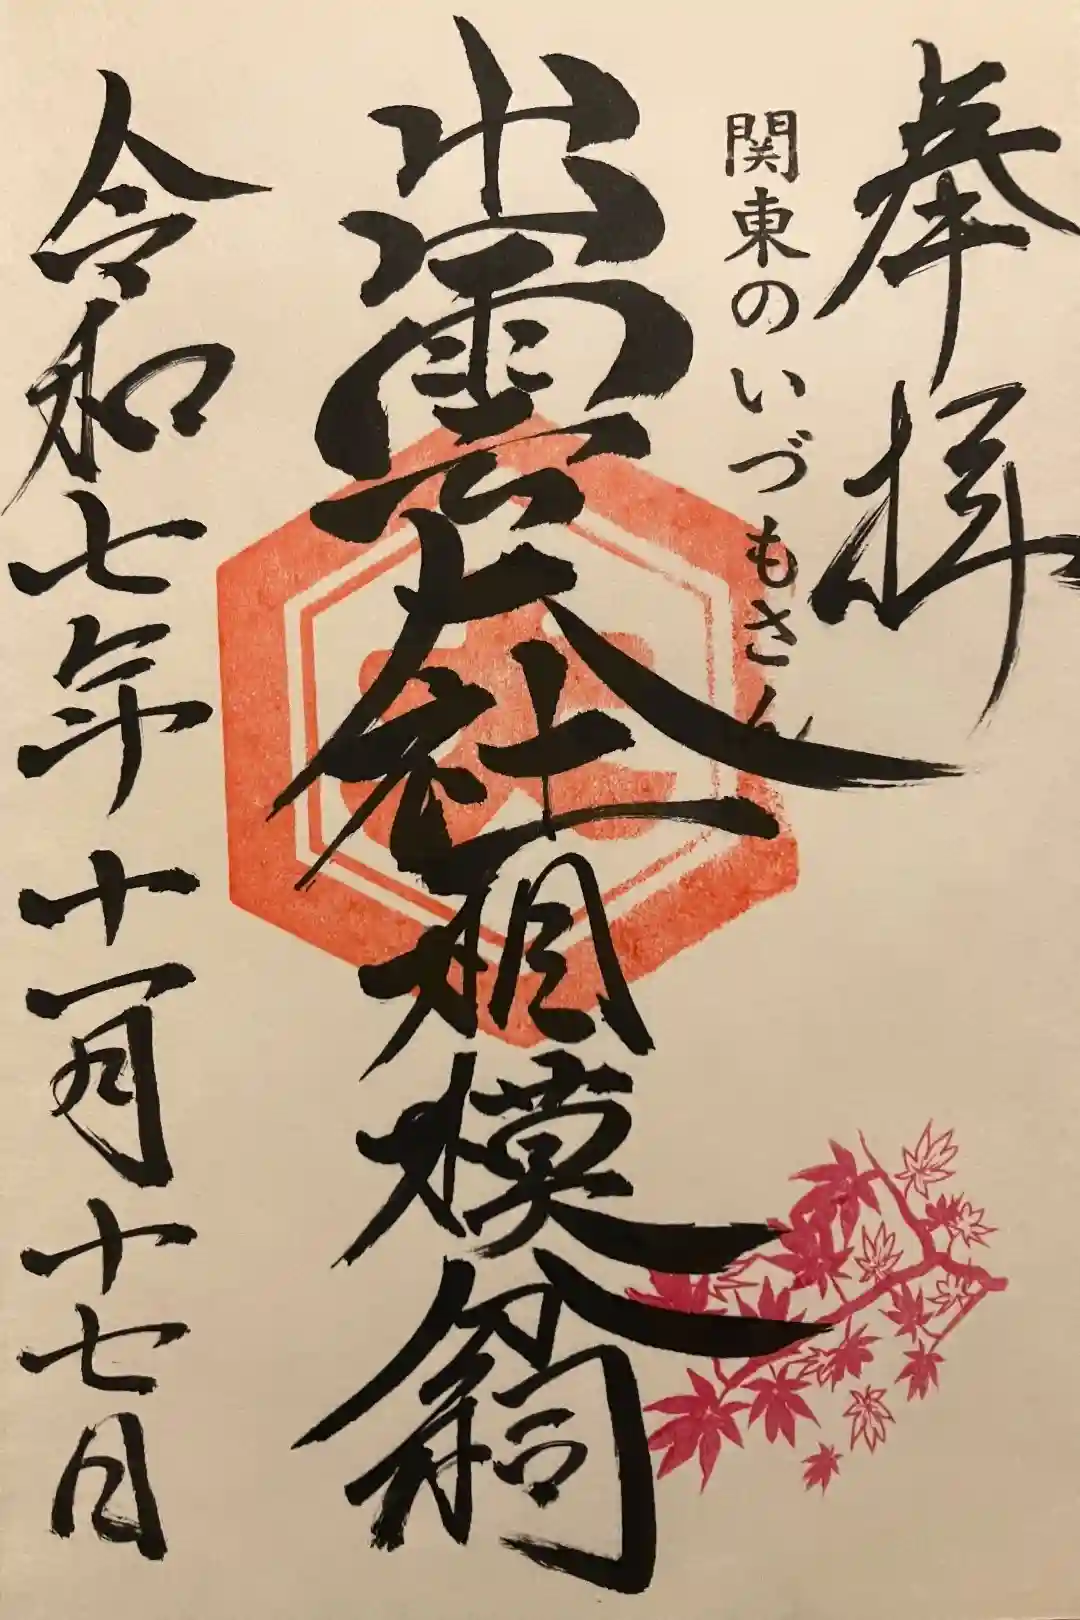 奉拝
関東のいづもさん
出雲大社相模分祠
令和七年十一月十七日